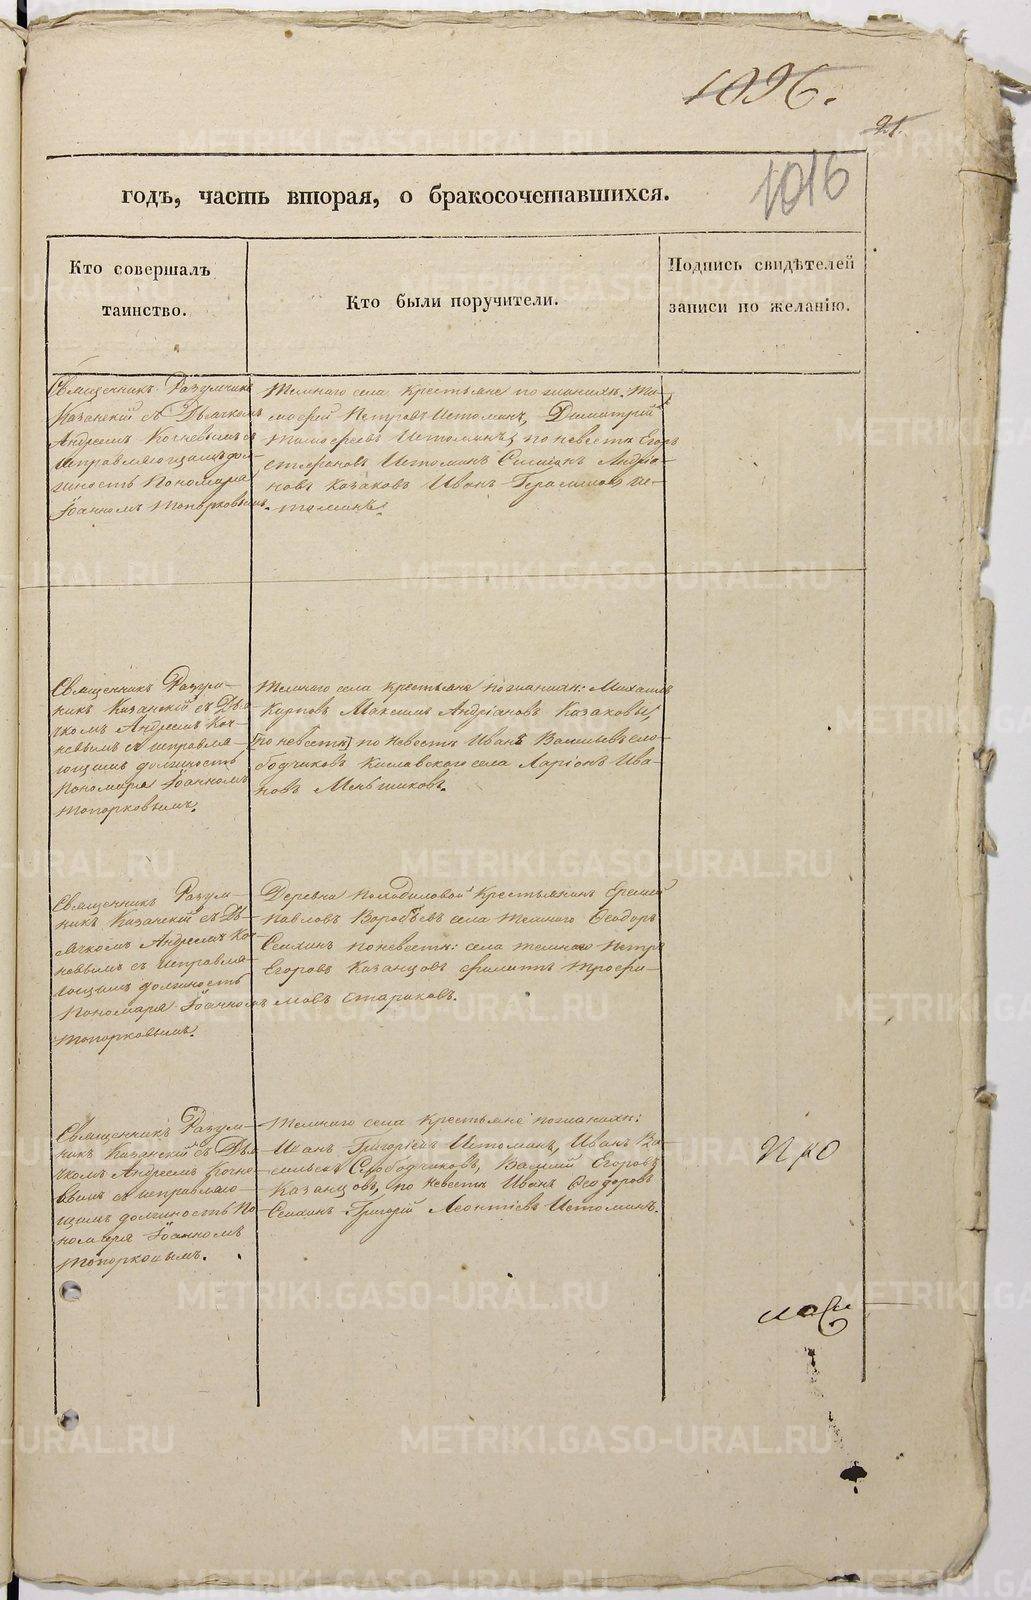 1096.
21.
1016
годъ, часть вторая, о бракосочетавшихся.
Кто совершалъ
таинство.
Кто были поручители.
Подпись свидѣтелей
записи по желанію.
Священникъ Разумникъ
Казанскій съ Дьячкомъ
Андреемъ Кочневымъ съ
исправляющимъ дол-
жность Пономаря
Іоанномъ Топорковымъ.
Темного села Крестьяне по женихѣ: Ти-
мофей Петровъ Истоминъ, Димитрій
Тимофеевъ Истоминъ, по невестѣ Егоръ
Стефановъ Истоминъ Андріа-
новъ Казаковъ Иванъ Герасимовъ Ис-
томинъ.
Священникъ Разум-
никъ Казанскій съ Дья-
чкомъ Андреемъ Коч-
невымъ съ исправля-
ющимъ должность
Пономаря Іоанномъ
Топорковымъ.
Темного села Крестьяне Михаилъ
Карповъ Максимъ Андріановъ Казаковы,
[по невестѣ] по невестѣ Иванъ Васильевъ Сло-
бодчиковъ Кисловского села Ларіонъ Ива-
новъ Меньшиковъ.
Священникъ Разум-
никъ Казанскій съ Дь-
ячкомъ Андреемъ Коч-
невымъ съ исправля-
ющимъ должность
Пономаря Іоанномъ
Топорковымъ.
Деревни Походиловой Крестьянинъ Еремей
Павловъ Воробьевъ села Темного Феодоръ
по невестѣ: села Темного Петръ
Егоровъ Казанцовъ Филипъ Трофи-
мовъ Стариковъ.
Священникъ Разум-
никъ Казанскій съ Дья-
чкомъ Андреемъ Кочне-
вымъ съ исправляю-
щимъ должность По-
номаря Іоанномъ
Топорковымъ.
Темного села Крестьяне
Иванъ Григорьевъ Истоминъ, Иванъ Ва-
сильевъ Слободчиковъ, Василій Егоровъ
Казанцовъ, по невестѣ Иванъ Феодоровъ
Григорій Леонтіевъ Истоминъ.
METRIKI.GASO-URAL.RU